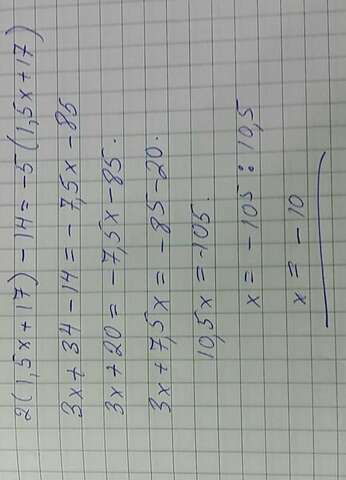 2(1,5x+17)-14=-5(1,5x+17)
3x+34-14=-7,5x-85
3x+20=-7,5x-85.
3x+7,5x=-85-20.
10,5x=-105.
x=-105:10,5
x=-10